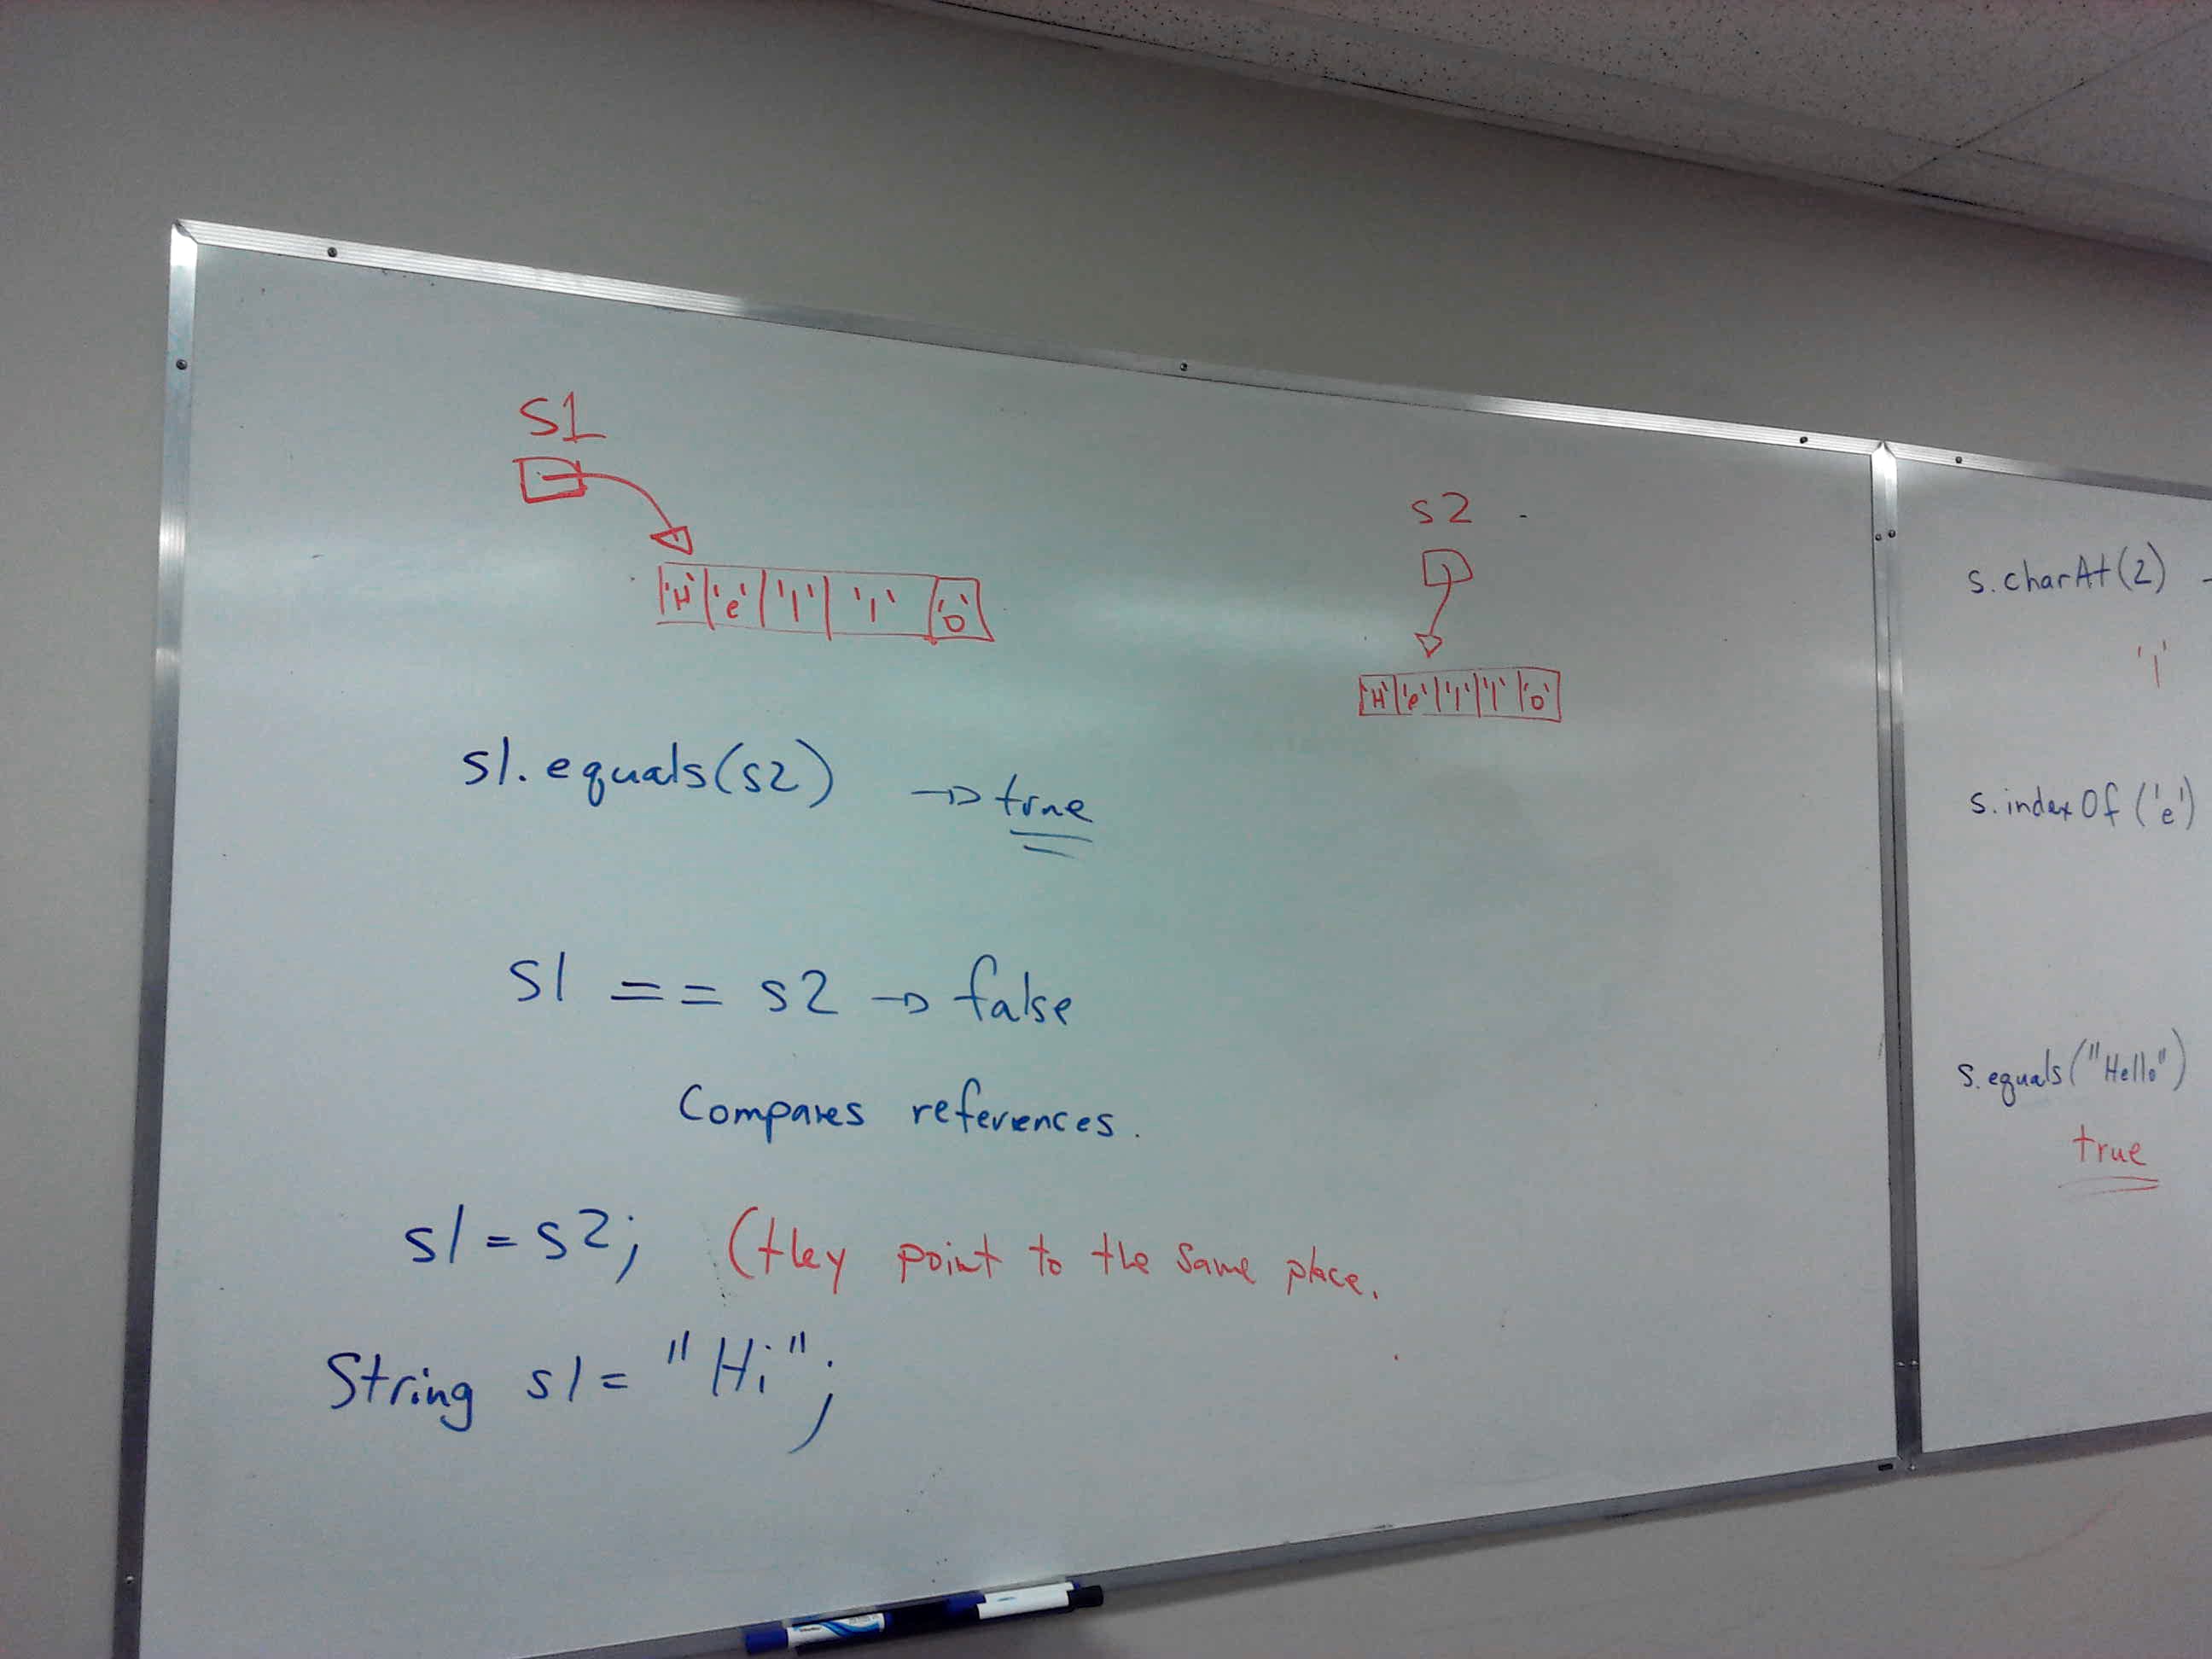 S1
'H' 'e' 'l' 'l' 'o'
s2
'H' 'e' 'l' 'l' 'o'
s1.equals(s2) → true
s1 == s2 → false
Compares references.
s1 = s2; (they point to the same place.
String s1 = "Hi";
s.charAt(2)
'l'
s.indexOf('e')
s.equals("Hello")
true